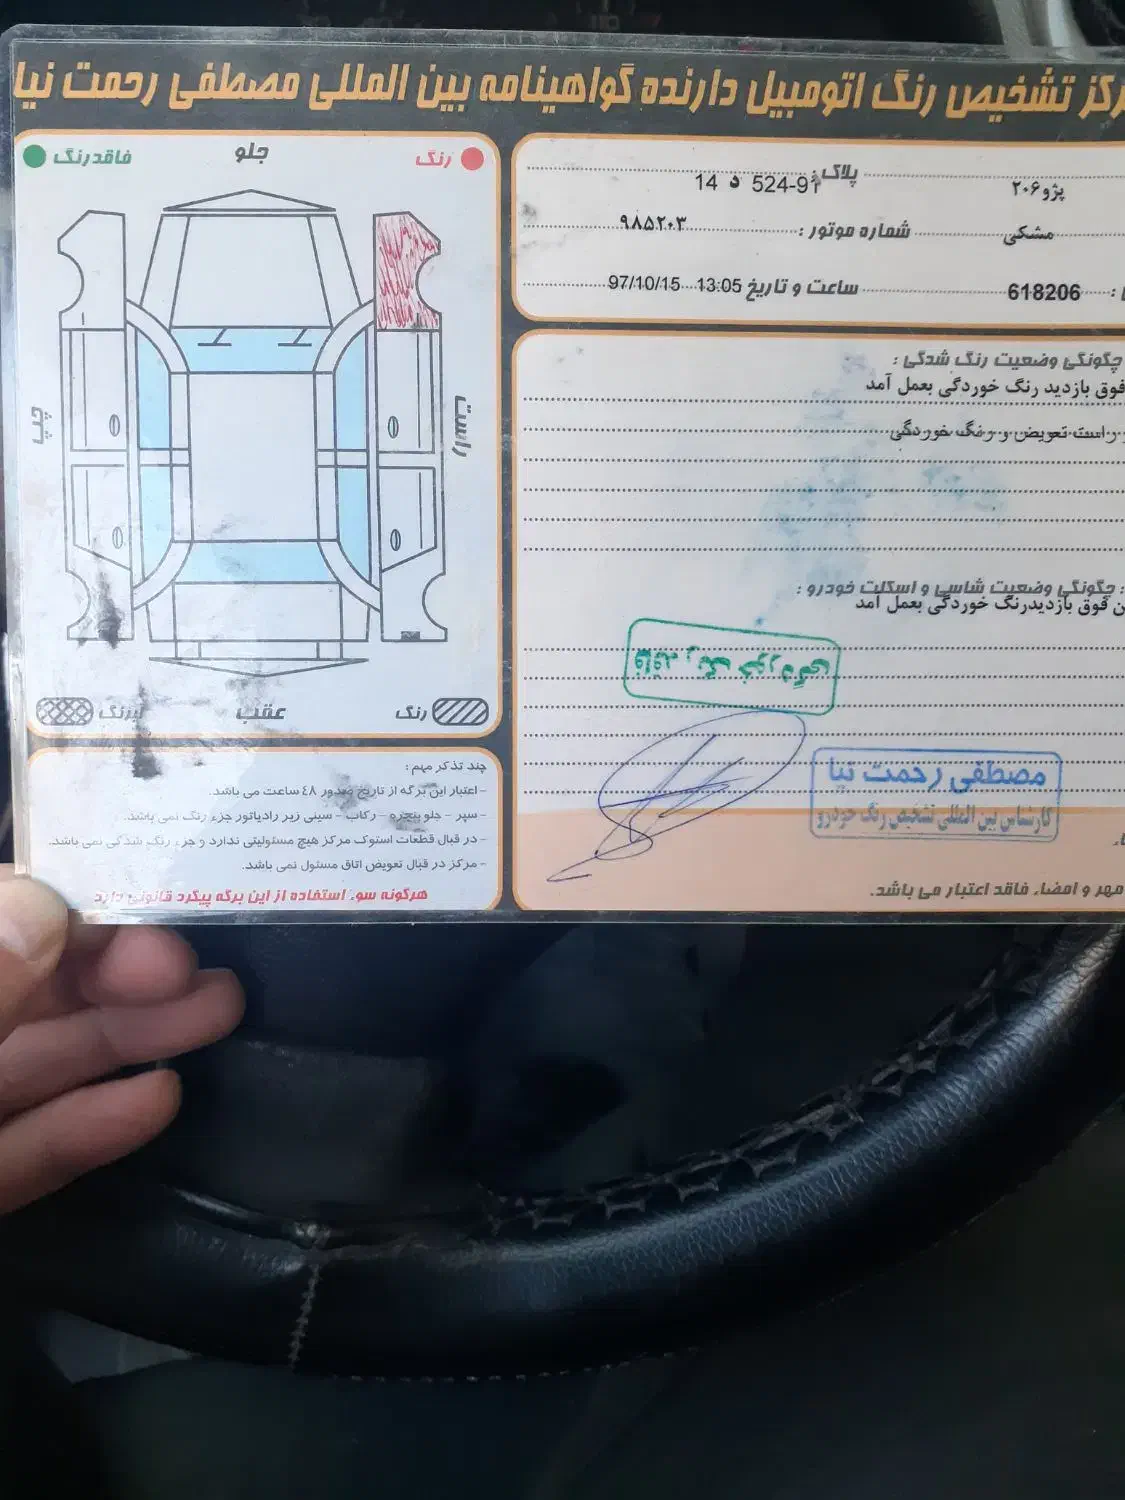 تشخیص رنگ اتومبیل دارنده گواهینامه بین المللی مصطفی رحمت نیا
فاقد رنگ
جلو
رنگ
چپ
راست
رنگ
عقب
پژو ۲۰۶ پلاک 524-91 د 14
مشکی شماره موتور : ۹۸۵۲۰۳
618206 ساعت و تاریخ 13:05 97/10/15
چگونگی وضعیت رنگ شدگی :
فوق بازدید رنگ خوردگی بعمل آمد
راست تعویض و رنگ خوردگی
چگونگی وضعیت شاسی و اسکلت خودرو :
فوق بازدیدرنگ خوردگی بعمل آمد
فاقد رنگ خوردگی
مصطفی رحمت نیا
کارشناس بین المللی تشخیص رنگ خودرو
مهر و امضاء فاقد اعتبار می باشد.
چند تذکر مهم :
- اعتبار این برگه از تاریخ صدور ٤٨ ساعت می باشد.
- سپر - جلو پنجره - رکاب - سینی زیر رادیاتور جزء رنگ نمی باشد.
- در قبال قطعات استوک مرکز هیچ مسئولیتی ندارد و جزء رنگ شدگی نمی باشد.
- مرکز در قبال تعویض اتاق مسئول نمی باشد.
هرگونه سوء استفاده از این برگه پیگرد قانونی دارد